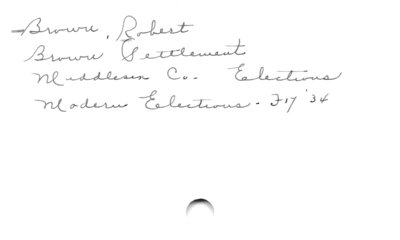 Brown, Robert
Brown Settlement
Middlesex Co. Elections
Modern Elections - F17 '34